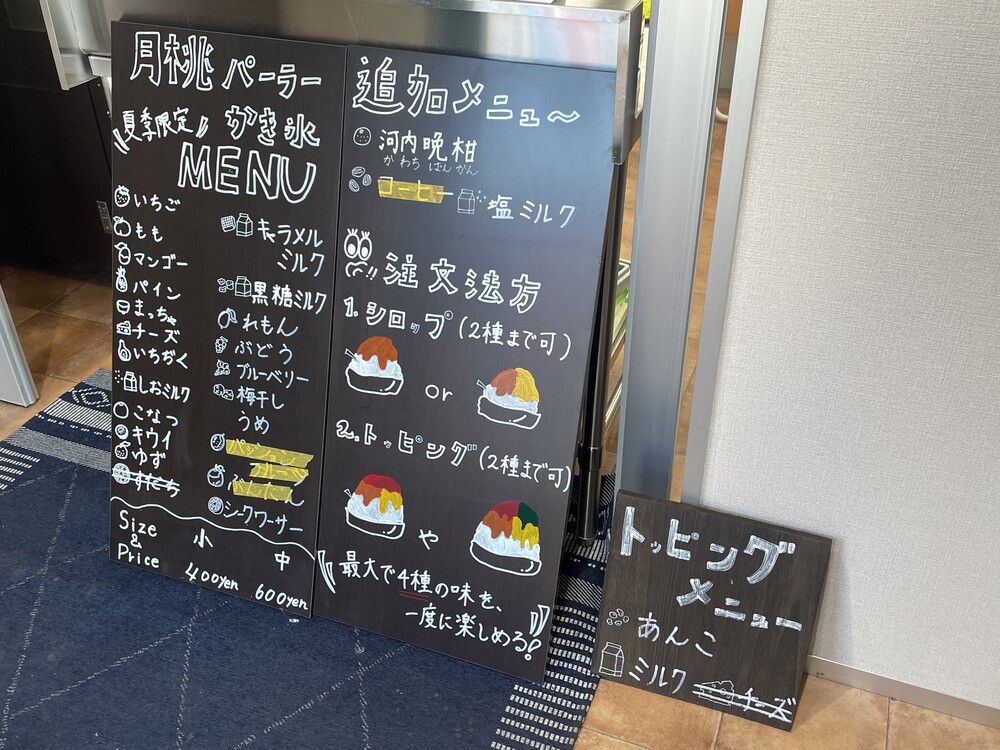 月桃パーラー
夏季限定 かき氷
MENU
いちご
もも
マンゴー
パイン
まっちゃ
チーズ
いちぢく
しおミルク
こなつ
キウイ
ゆず
すだち
キャラメル
ミルク
黒糖ミルク
れもん
ぶどう
ブルーベリー
梅干し
うめ
パッション
フルーツ
ぶんたん
シークワーサー
Size
&
Price
小
400yen
中
600yen
追加メニュ〜
河内晩柑
かわちばんかん
コーヒー
塩ミルク
注文法方
1. シロップ(2種まで可)
or
2. トッピング(2種まで可)
や
最大で4種の味を、
一度に楽しめる!
トッピング
メニュー
あんこ
ミルク
チーズ